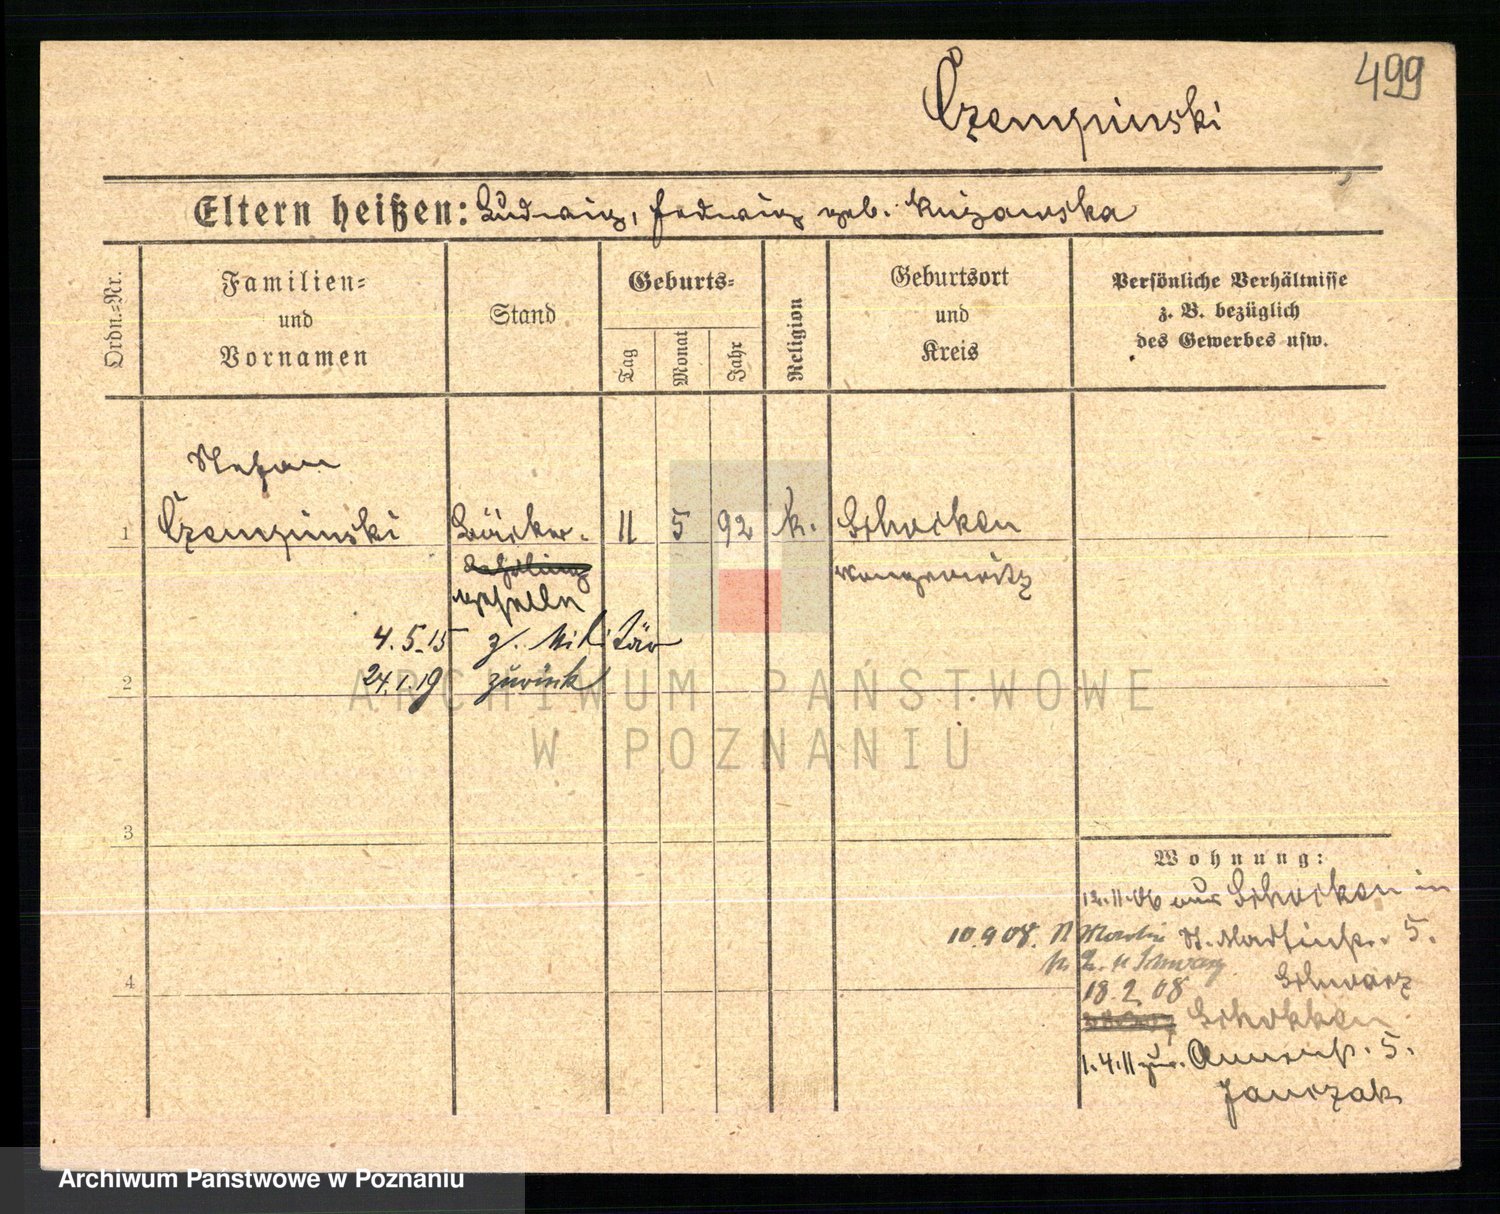 499
Czempinski
Eltern heißen: Ludwig, Hedwig geb. Kujawska
Ordn.-Nr.
Familien-
und
Vornamen
Stand
Geburts-
Tag
Monat
Jahr
Religion
Geburtsort
und
Kreis
Persönliche Verhältnisse
z. B. bezüglich
des Gewerbes usw.
Stefan
1 Czempinski Bäcker- 11 5 92 k. Schocken
Lehrling Wongrowitz
geselle
4.5.15 z. Militär
24.1.19 zurück
2
ARCHIWUM PAŃSTWOWE
W POZNANIU
3
Wohnung:
12.11.06 aus Schocken in
St. Martinstr. 5.
10.9.08. St Martin
Schwarz
18.2.08
4
Schokken
1.4.11 zur. 5.
Janczak
Archiwum Państwowe w Poznaniu